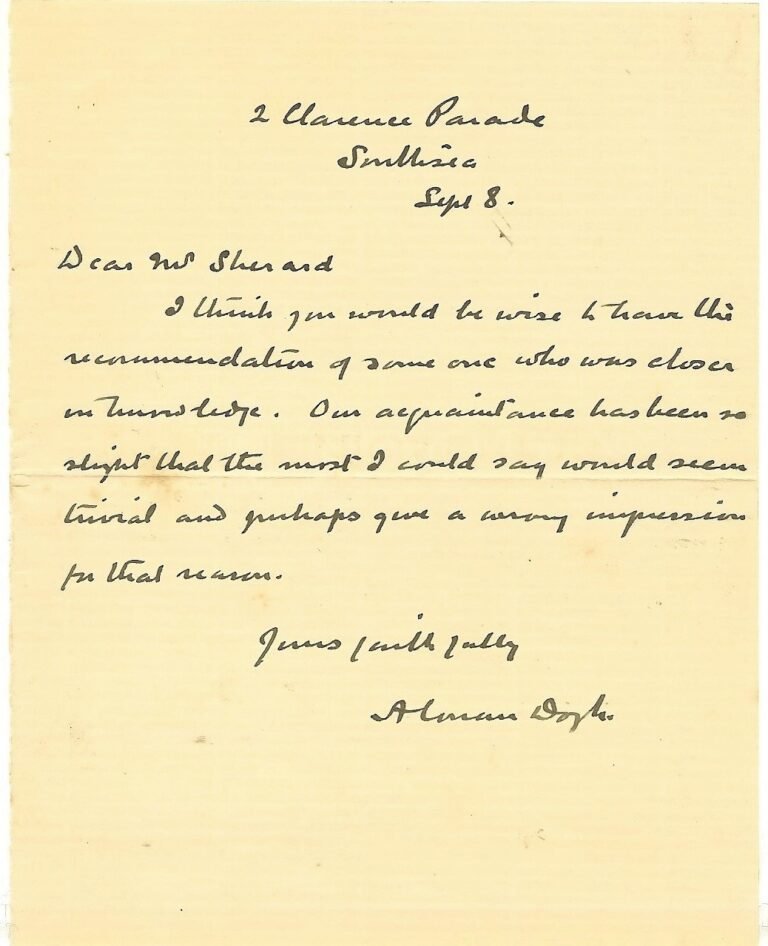 2 Clarence Parade
Southsea
Sept 8.
Dear Mr Sherard
I think you would be wise to have the
recommendation of some one who was closer
in knowledge. Our acquaintance has been so
slight that the most I could say would seem
trivial and perhaps give a wrong impression
for that reason.
Yours faithfully
A Conan Doyle.